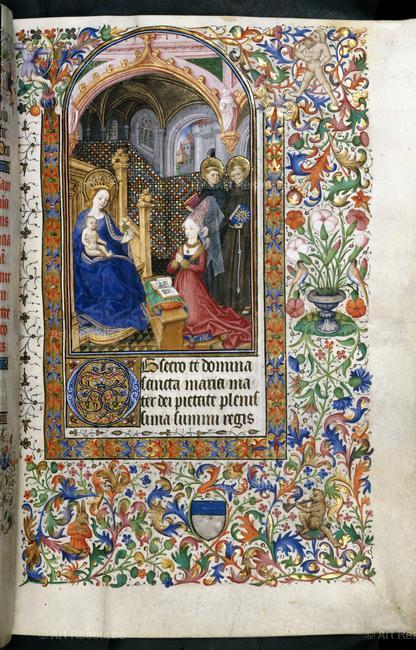 Obsecro te domina
sancta maria ma
ter dei pietate plenis
sima summi regis
© Art Resource